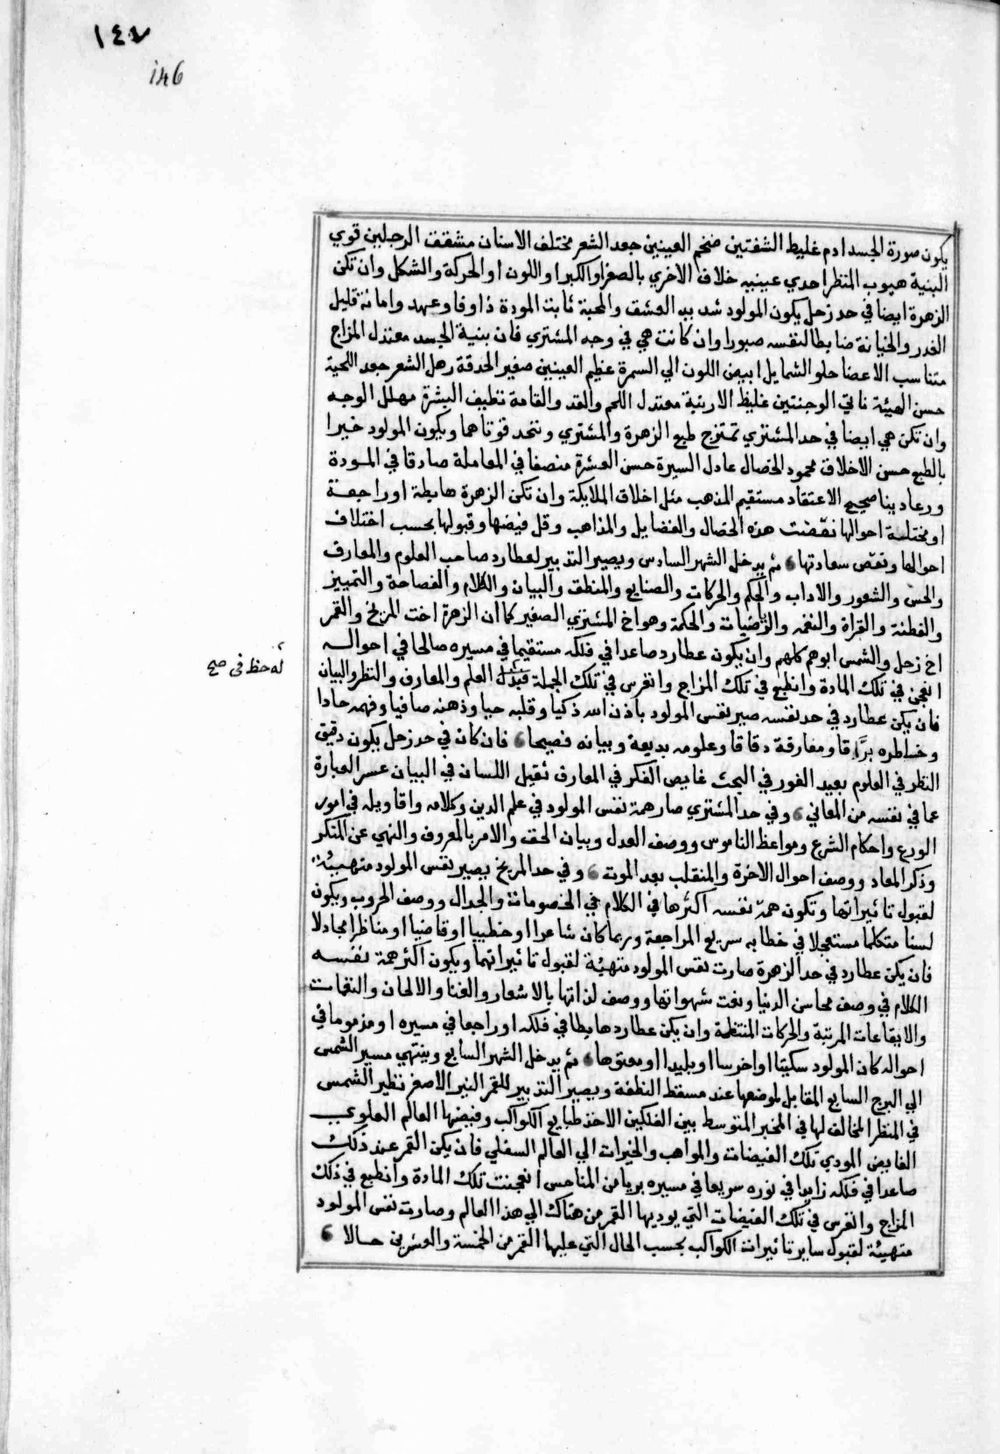 ١٤٧
146
يكون صورة الجسد ادم غليظ الشفتين ضخم العينين جعد الشعر مختلف الاسنان مشقف الرجلين قوي
البنية هيوب المنظر احدي عينيه خلاف الاخري بالصغر او الكبر او اللون او الحركة والشكل وان تكن
الزهرة ايضا في حد زحل يكون المولود شديد العشق والمحبة ثابت المودة ذا وفا وعهد وامانة قليل
الغدر والخيانة ضابطا لنفسه صبورا وان كانت هي في وجه المشتري فان بنية الجسد معتدل المزاج
متناسب الاعضا حلو الشمايل ابيض اللون الي السمرة عظيم العينين صغير الحدقة رجل الشعر جعد اللحية
حسن الهيئة ناتي الوجنتين غليظ الارنبة معتدل اللحم والقد والقامة نظيف البشرة مهلل الوجه
وان تكن هي ايضا في حد المشتري تمتزج طبع الزهرة والمشتري وتتحد قوتاهما ويكون المولود خيرا
بالطبع حسن الاخلاق محمود الخصال عادل السيرة حسن العشرة منصفا في المعاملة صادقا في المودة
ورعا دينا صحيح الاعتقاد مستقيم المذهب مثل اخلاق الملايكة وان تكن الزهرة هابطة او راجعة
او مختلسة احوالها نقصت هذه الخصال والفضايل والمذاهب وقل فيضها وقبولها بحسب اختلاف
احوالها ونقص سعادتها ۶ ثم يدخل الشهر السادس ويصير التدبير لعطارد صاحب العلوم والمعارف
والحس والشعور والاداب والحكم والحركات والصنايع والمنطق والبيان والكلام والفصاحة والتمييز
والفطنة والقراة والنغمه والرياضيات والحكمة وهو اخ المشتري الصغير كما ان الزهرة اخت المريخ والقمر
اخ زحل والشمس ابوهم كلهم وان يكون عطارد صاعدا في فلكه مستقيما في مسيره صالحا في احواله
انعجن في تلك المادة وانطبع في تلك المزاج وانغرس في تلك الجملة العلم والمعارف والنظر والبيان
له حظ في صح
فان يكن عطارد في حد نفسه صير نفس المولود باذن الله ذكيا وقلبه حيا وذهنه صافيا وفهمه حادا
وخاطره براقا ومعارفة دقاقا وعلومه بديعة وبيانه فصيحا ۶ فان كان في حد زحل يكون دقيق
النظر في العلوم بعيد الغور في البحث غايص الفكر في المعارف ثقيل اللسان في البيان عسر العبارة
عما في نفسه من المعاني ۶ وفي حد المشتري صار همة نفس المولود في علم الدين وكلامه واقاويله في امور
الورع واحكام الشرع ومواعظ الناموس ووصف العدل وبيان الحق والامر بالمعروف والنهي عن المنكر
وذكر المعاد ووصف احوال الاخرة والمنقلب بعد الموت ۶ وفي حد المريخ يصير نفس المولود متهيئة
لقبول تاثيراتها وتكون همة نفسه اكثرها في الكلام في الخصومات والجدال ووصف الحروب ويكون
لسنا متكلما مستعجلا في خطابه سريع المراجعة وربما كان شاعرا او خطيبا او قاضيا او مناظرا مجادلا
فان يكن عطارد في حد الزهرة صارت نفس المولود متهيئة لقبول تاثيراتهما ويكون اكثر همة نفسه
الكلام في وصف محاسن الدنيا ونعت شهواتها ووصف لذاتها بالاشعار والغنا والالحان والنغمات
والايقاعات المرتبة والحركات المنتظمة وان يكن عطارد هابطا في فلكه او راجعا في مسيره او مذموما في
احواله كان المولود سكيتا او اخرسا او بليدا او معتوها ۶ ثم يدخل الشهر السابع وينتهي مسير الشمس
الي البرج السابع المقابل لموضعها عند مسقط النطفة ويصير التدبير للقمر النير الاصغر نظير الشمس
في المنظر المخالف لها في المخبر المتوسط بين الفلكين الاخذ طبايع الكواكب وفيضها العالم العلوي
الفايض المودي تلك الفيضات والمواهب والخيرات الي العالم السفلي فان يكن القمر عند ذلك
صاعدا في فلكه زايدا في نوره سريعا في مسيره بريا من المناحس انعجنت تلك المادة وانطبع في ذلك
المزاج وانغرس في تلك الفيضات التي يوديها القمر من هناك الي هذا العالم وصارت نفس المولود
متهيئة لقبول ساير تاثيرات الكواكب بحسب الحال التي عليها القمر من الخمسة والعشرين حالا ۶